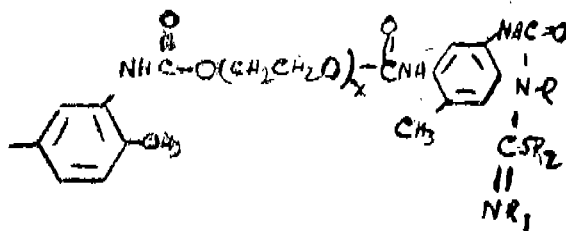 O O
NHC-O(CH2CH2O)x-CNH NHC=O
NR
CH3 CH3
CSR2
NR1